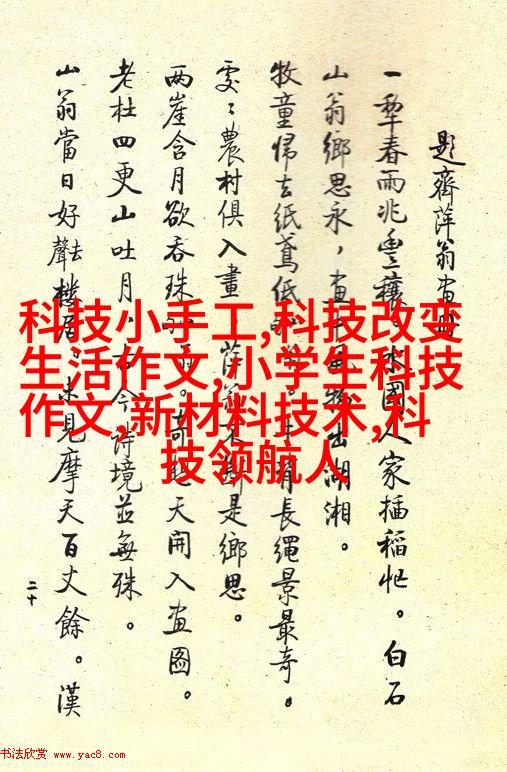 題齊萍翁畫冊
一犂春雨兆豐穰。水國人家插稻忙。白石
山翁鄉思永,畫中風物出湖湘。
牧童歸去紙鳶低 有長繩景最奇。
處〻農村俱入畫 是鄉思。
兩崖含月欲吞珠 天開入畫圖。
老杜四更山吐月,古今詩境並無殊。
山翁當日好去聲樓居。未見摩天百丈餘。漢
二十
科技小手工,科技改变
生活作文,小学生科技
作文,新材料技术,科
技领航人
书法欣赏
www.yac8.com